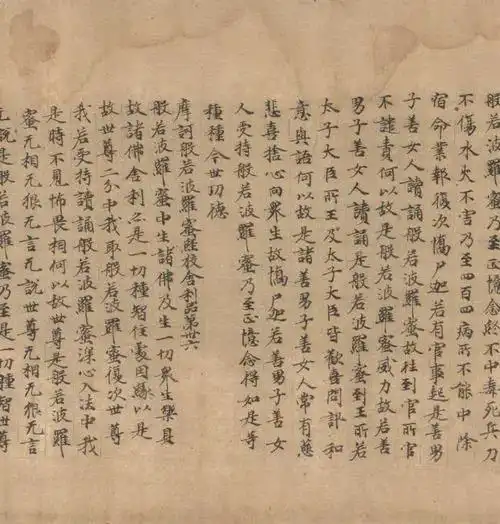 般若波羅蜜乃至正憶念終不中毒死兵刀
不傷水火不害乃至四百四病所不能中除
宿命業報復次憍尸迦若有官事起是善男
子善女人讀誦般若波羅蜜故往到官所官
不譴責何以故是般若波羅蜜威力故若善
男子善女人讀誦是般若波羅蜜到王所若
太子大臣所王及太子大臣皆歡喜問訊和
意與語何以故是諸善男子善女人常有慈
悲喜捨心向眾生故憍尸迦若善男子善女
人受持般若波羅蜜乃至正憶念得如是等
種種今世功德
摩訶般若波羅蜜經挍舍利品第卅六
般若波羅蜜中生諸佛及生一切眾生樂具
故諸佛舍利亦是一切種智住處因緣以是
故世尊二分中我取般若波羅蜜復次世尊
我若受持讀誦般若波羅蜜深心入法中我
是時不見怖畏相何以故世尊是般若波羅
蜜无相无貌无言无說世尊无相无貌无言
无說是般若波羅蜜乃至是一切種智世尊